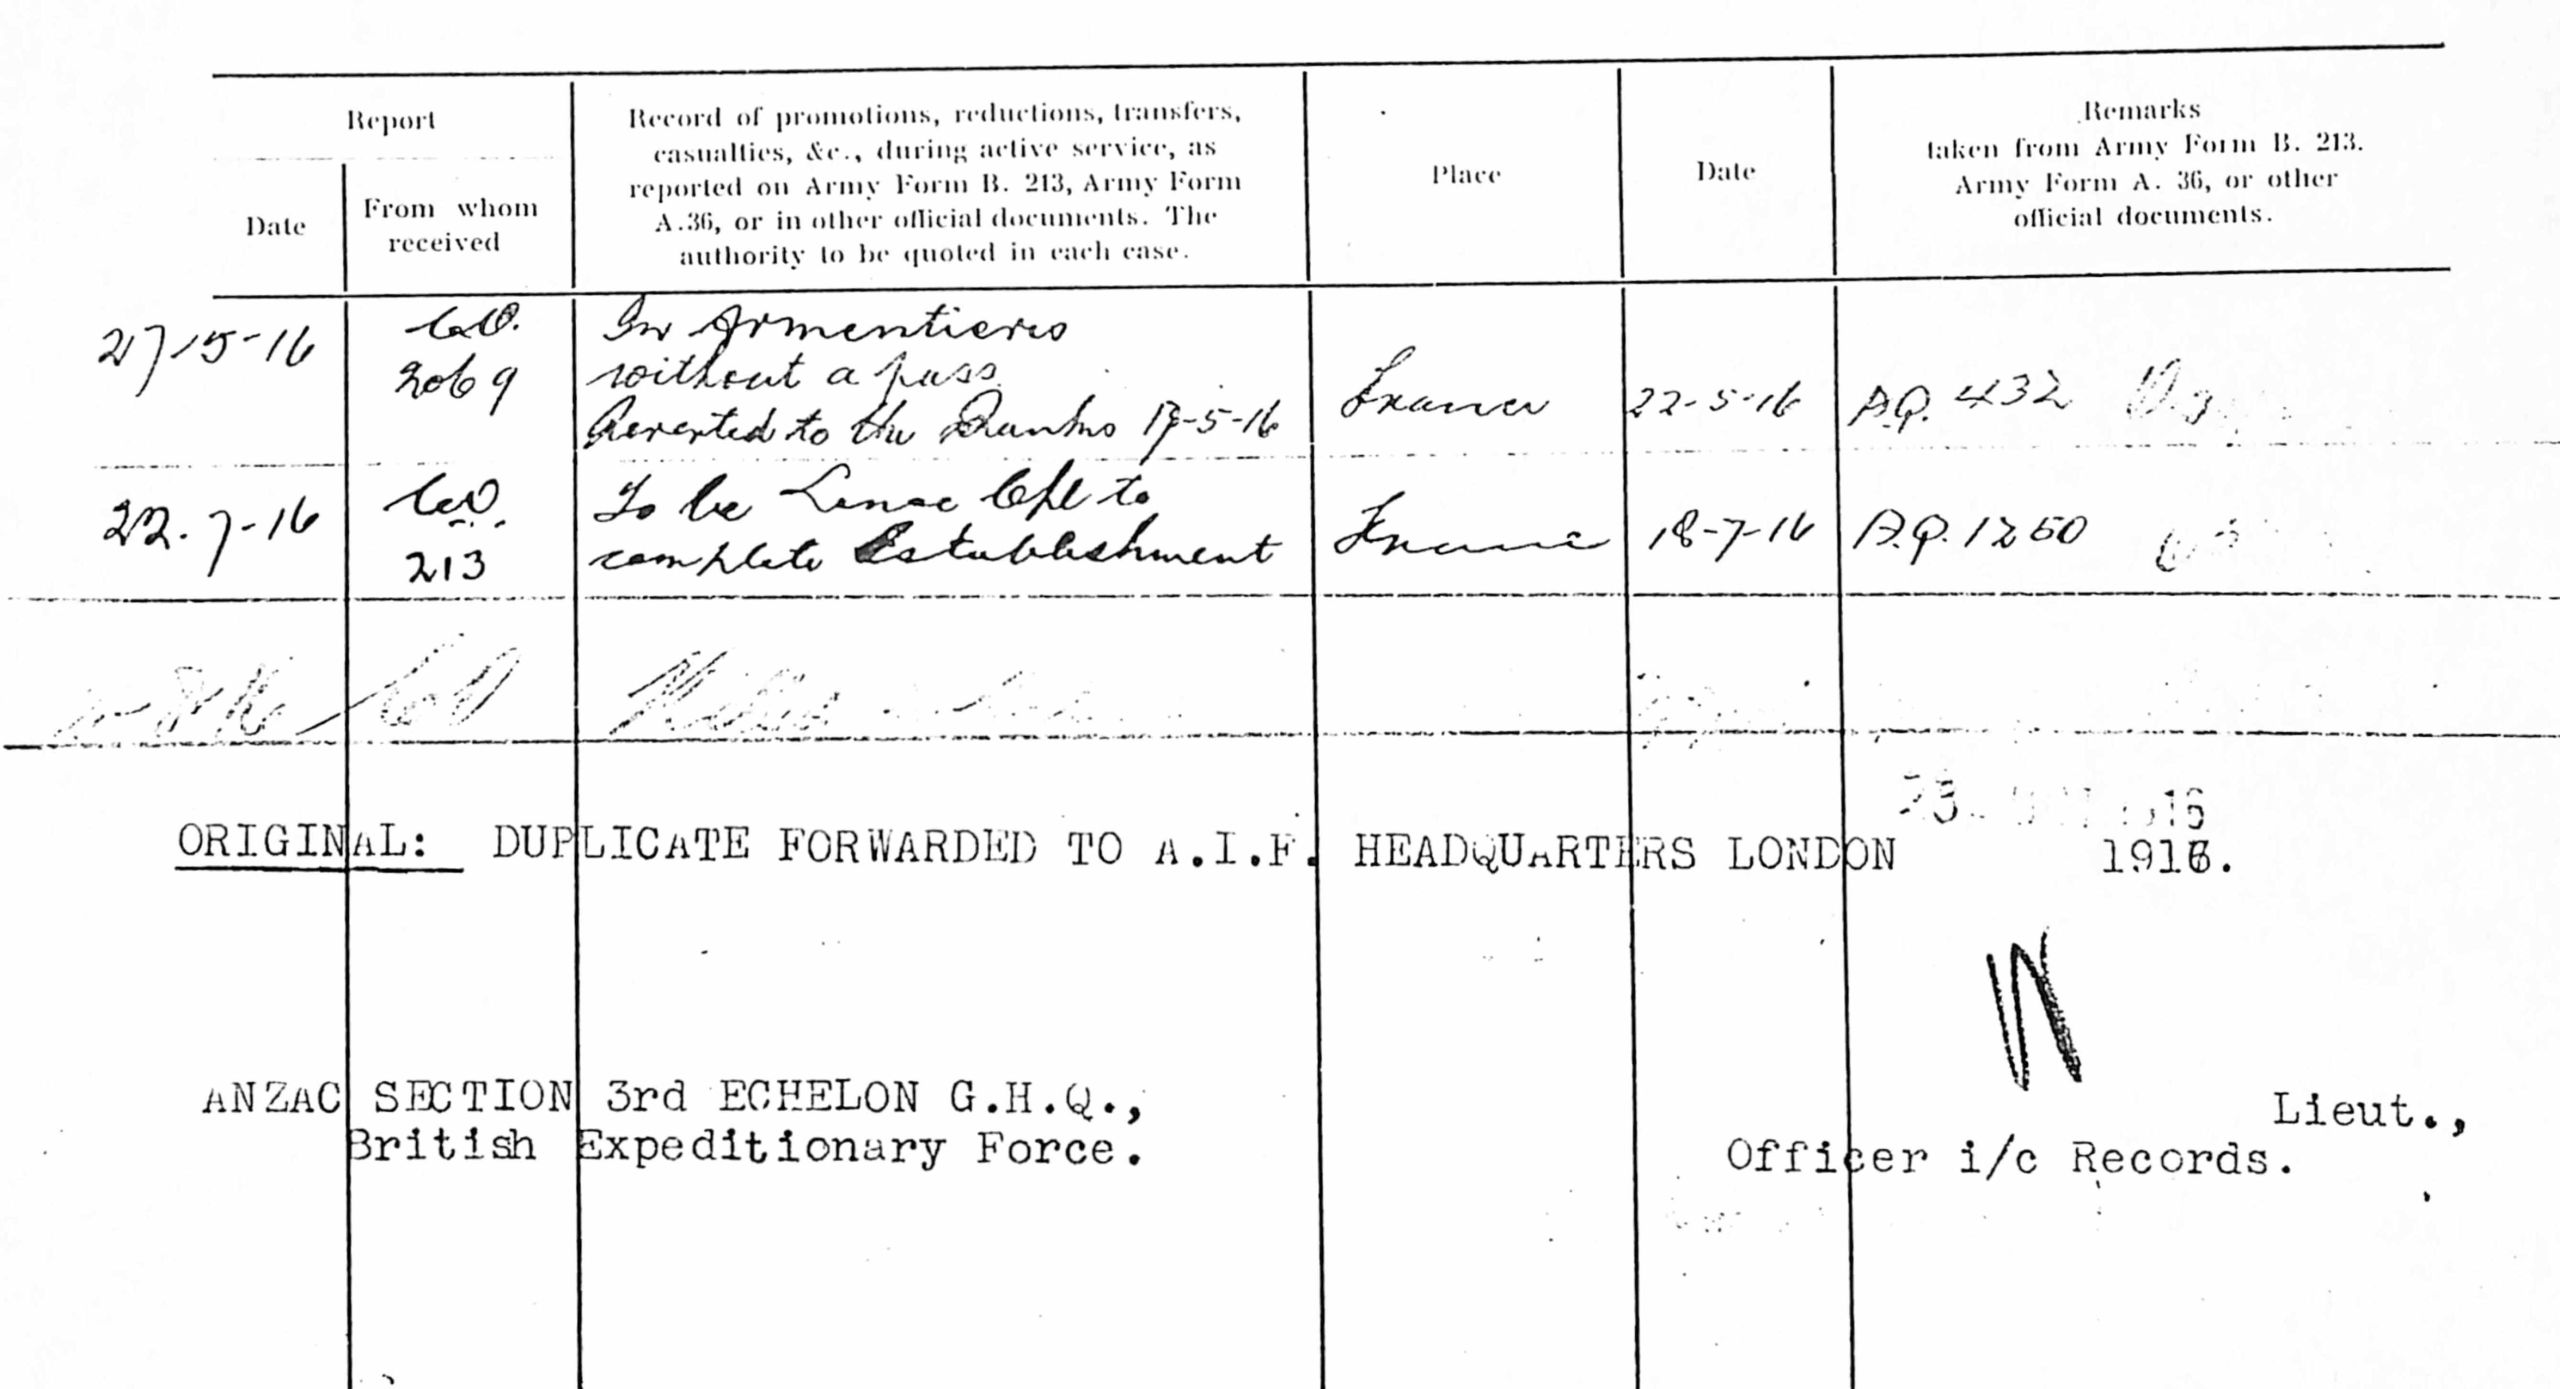 Report
Date
From whom
received
Record of promotions, reductions, transfers,
casualties, &c., during active service, as
reported on Army Form B. 213, Army Form
A.36, or in other official documents. The
authority to be quoted in each case.
Place
Date
Remarks
taken from Army Form B. 213.
Army Form A. 36, or other
official documents.
27-5-16
C.O.
2069
In Armentieres
without a pass
Reverted to the Ranks 17-5-16
France
22-5-16
432
22.7-16
C.O.
213
To be Lance Cpl to
complete Establishment
France
18-7-16
1250
C.O.
Killed
ORIGINAL: DUPLICATE FORWARDED TO A.I.F. HEADQUARTERS LONDON 1916.
ANZAC SECTION 3rd ECHELON G.H.Q.,
British Expeditionary Force.
Lieut.,
Officer i/c Records.